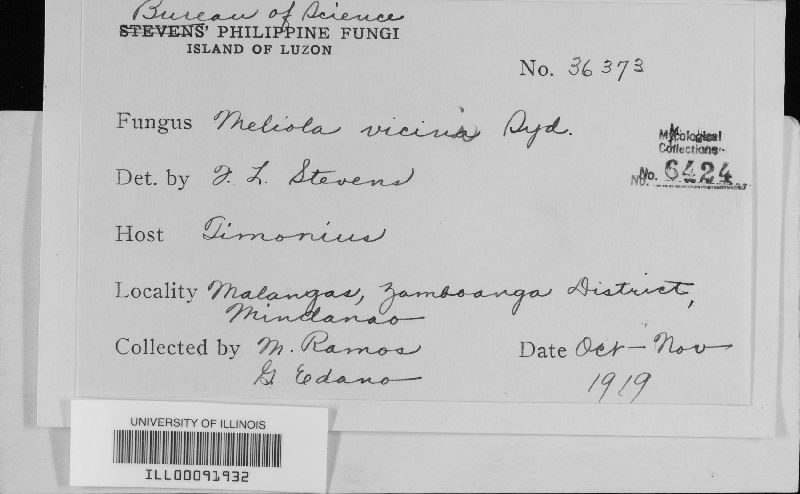 Bureau of Science
STEVENS' PHILIPPINE FUNGI
ISLAND OF LUZON
No. 36373
Fungus Meliola vicina Syd.
Mycological
Collections
No. 6424
Det. by F. L. Stevens
Host Timonius
Locality Malangas, Zamboanga District,
Mindanao
Collected by M. Ramos
G Edano
Date Oct - Nov
1919
UNIVERSITY OF ILLINOIS
ILL00091932